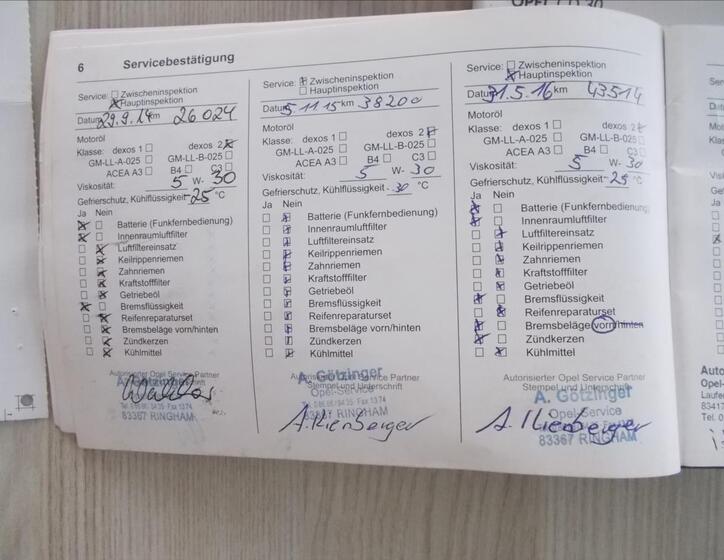 OPEL CD 30
6 Servicebestätigung
Service: Zwischeninspektion
Hauptinspektion
Datum 29.9.14 km 26024
Motoröl
Klasse: dexos 1 dexos 2
GM-LL-A-025 GM-LL-B-025
ACEA A3 B4 C3
Viskosität: 5 W- 30
Gefrierschutz, Kühlflüssigkeit -25 °C
Ja Nein
Batterie (Funkfernbedienung)
Innenraumluftfilter
Luftfiltereinsatz
Keilrippenriemen
Zahnriemen
Kraftstofffilter
Getriebeöl
Bremsflüssigkeit
Reifenreparaturset
Bremsbeläge vorn/hinten
Zündkerzen
Kühlmittel
Autorisierter Opel Service Partner
A. Götzinger
83367 RINGHAM
Service: Zwischeninspektion
Hauptinspektion
Datum 5.11.15 km 38200
Motoröl
Klasse: dexos 1 dexos 2
GM-LL-A-025 GM-LL-B-025
ACEA A3 B4 C3
Viskosität: 5 W- 30
Gefrierschutz, Kühlflüssigkeit - 30 °C
Ja Nein
Batterie (Funkfernbedienung)
Innenraumluftfilter
Luftfiltereinsatz
Keilrippenriemen
Zahnriemen
Kraftstofffilter
Getriebeöl
Bremsflüssigkeit
Reifenreparaturset
Bremsbeläge vorn/hinten
Zündkerzen
Kühlmittel
Autorisierter Opel Service Partner
A. Götzinger
Stempel und Unterschrift
Opel-Service
83367 RINGHAM
Service: Zwischeninspektion
Hauptinspektion
Datum 31.5.16 km 43514
Motoröl
Klasse: dexos 1 dexos 2
GM-LL-A-025 GM-LL-B-025
ACEA A3 B4 C3
Viskosität: 5 W- 30
Gefrierschutz, Kühlflüssigkeit -25 °C
Ja Nein
Batterie (Funkfernbedienung
Innenraumluftfilter
Luftfiltereinsatz
Keilrippenriemen
Zahnriemen
Kraftstofffilter
Getriebeöl
Bremsflüssigkeit
Reifenreparaturset
Bremsbeläge vorn/hinten
Zündkerzen
Kühlmittel
Autorisierter Opel Service Partner
A. Götzinger
Stempel und Unterschrift
Opel-Service
83367 RINGHAM